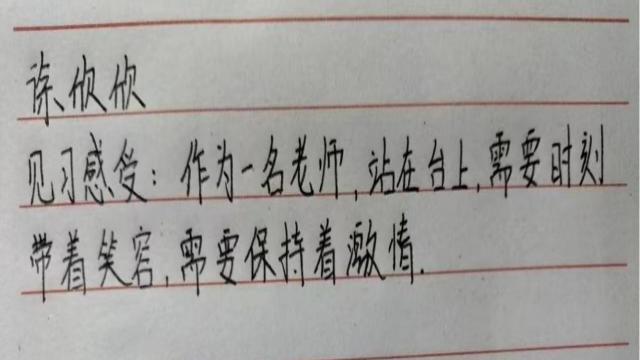 欣欣
见习感受：作为一名老师，站在台上，需要时刻
带着笑容，需要保持着激情.